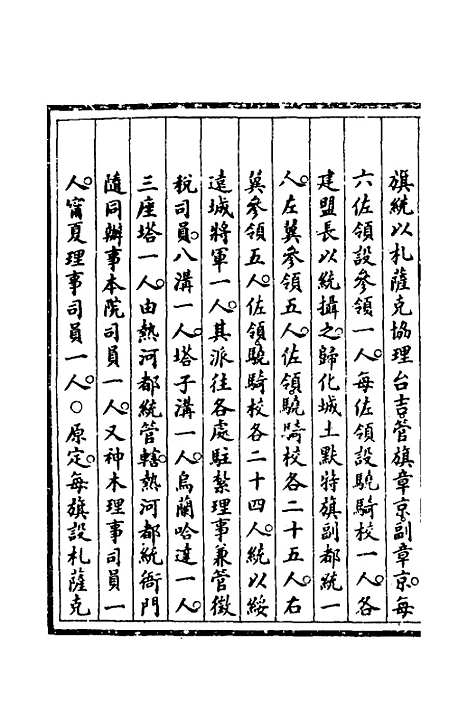 旗統以札薩克協理台吉管旗章京副章京。每
六佐領設參領一人。每佐領設驍騎校一人。各
建盟長以統攝之。歸化城土默特旗副都統一
人。左翼參領五人。佐領驍騎校各二十五人。右
翼參領五人。佐領驍騎校各二十四人。統以綏
遠城將軍一人。其派往各處駐紮理事兼管徵
稅司員。八溝一人。塔子溝一人。烏蘭哈達一人。
三座塔一人。由熱河都統管轄。熱河都統衙門
隨同辦事本院司員一人。又神木理事司員一
人。甯夏理事司員一人。○原定。每旗設札薩克